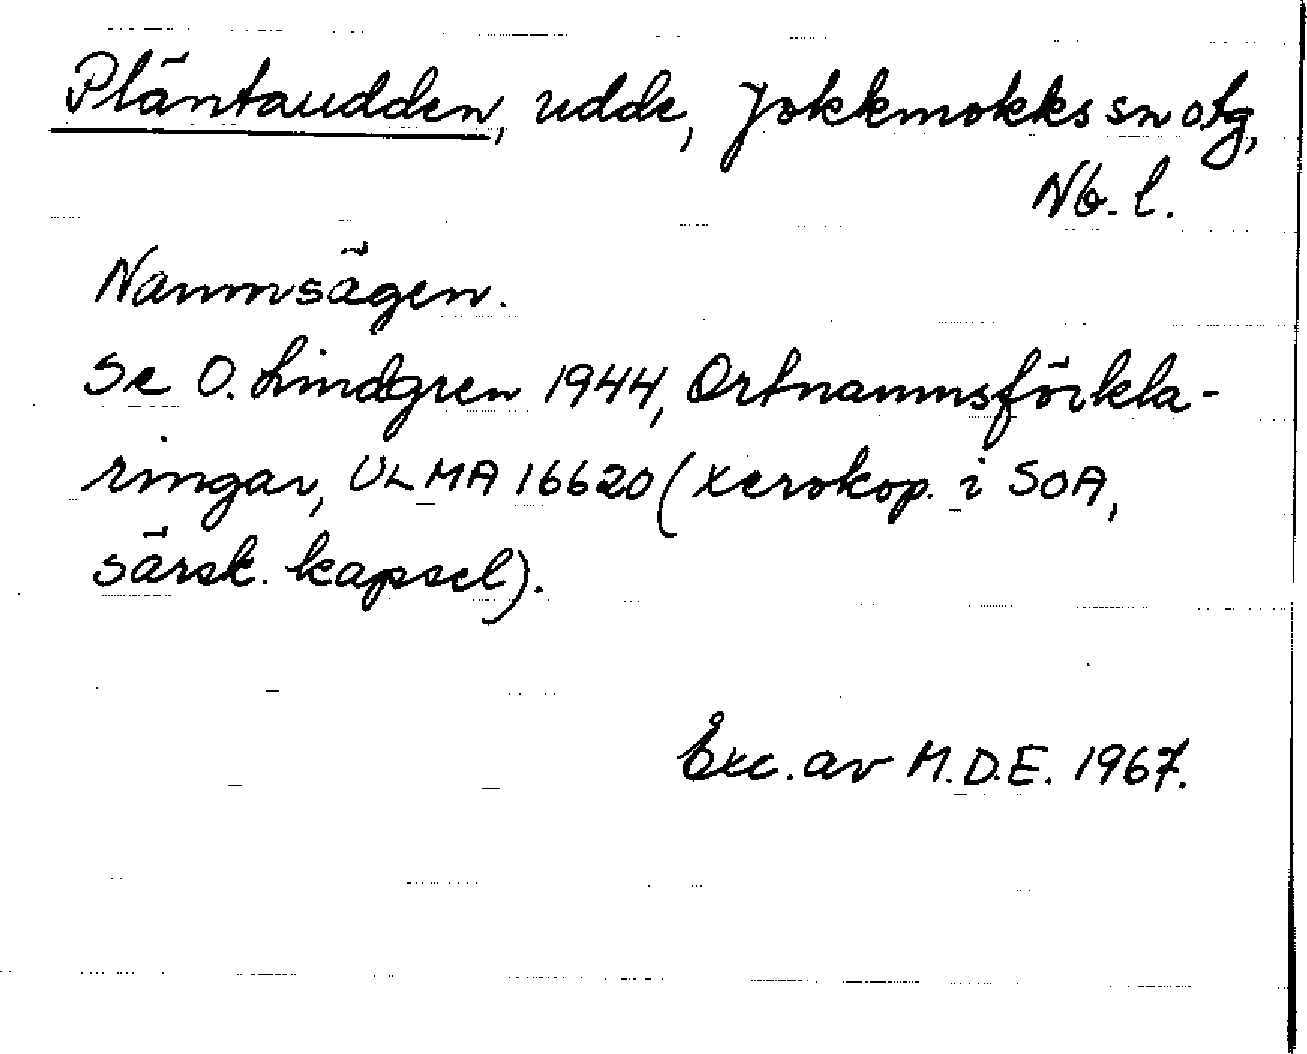 Pläntaudden, udde, Jokkmokks sn otg,
Nb. l.
Namnsägen.
Se O. Lindgren 1944, Ortnamnsförkla-
ringar, ULMA 16620 (xerokop. i SOA,
särsk. kapsel).
Exc. av M.D.E. 1967.